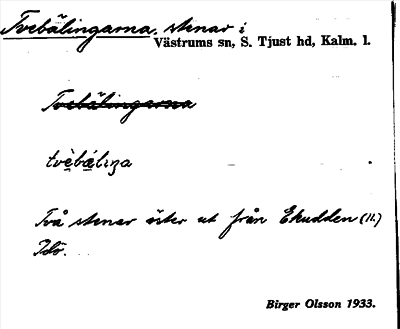 Tvebälingarna, stenar i
Västrums sn, S. Tjust hd, Kalm. l.
Tvebälingarna
tvèbáliŋa
Två stenar öster ut från Ekudden (11.)
Idö.
Birger Olsson 1933.